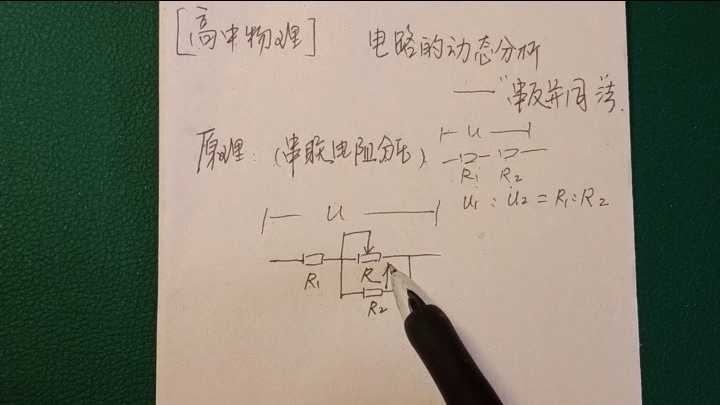 [高中物理] 电路的动态分析
——"串反并同"法.
原理:(串联电阻分压)
U
R₁ R₂
U₁:U₂=R₁:R₂
U
R₁ R
R₂